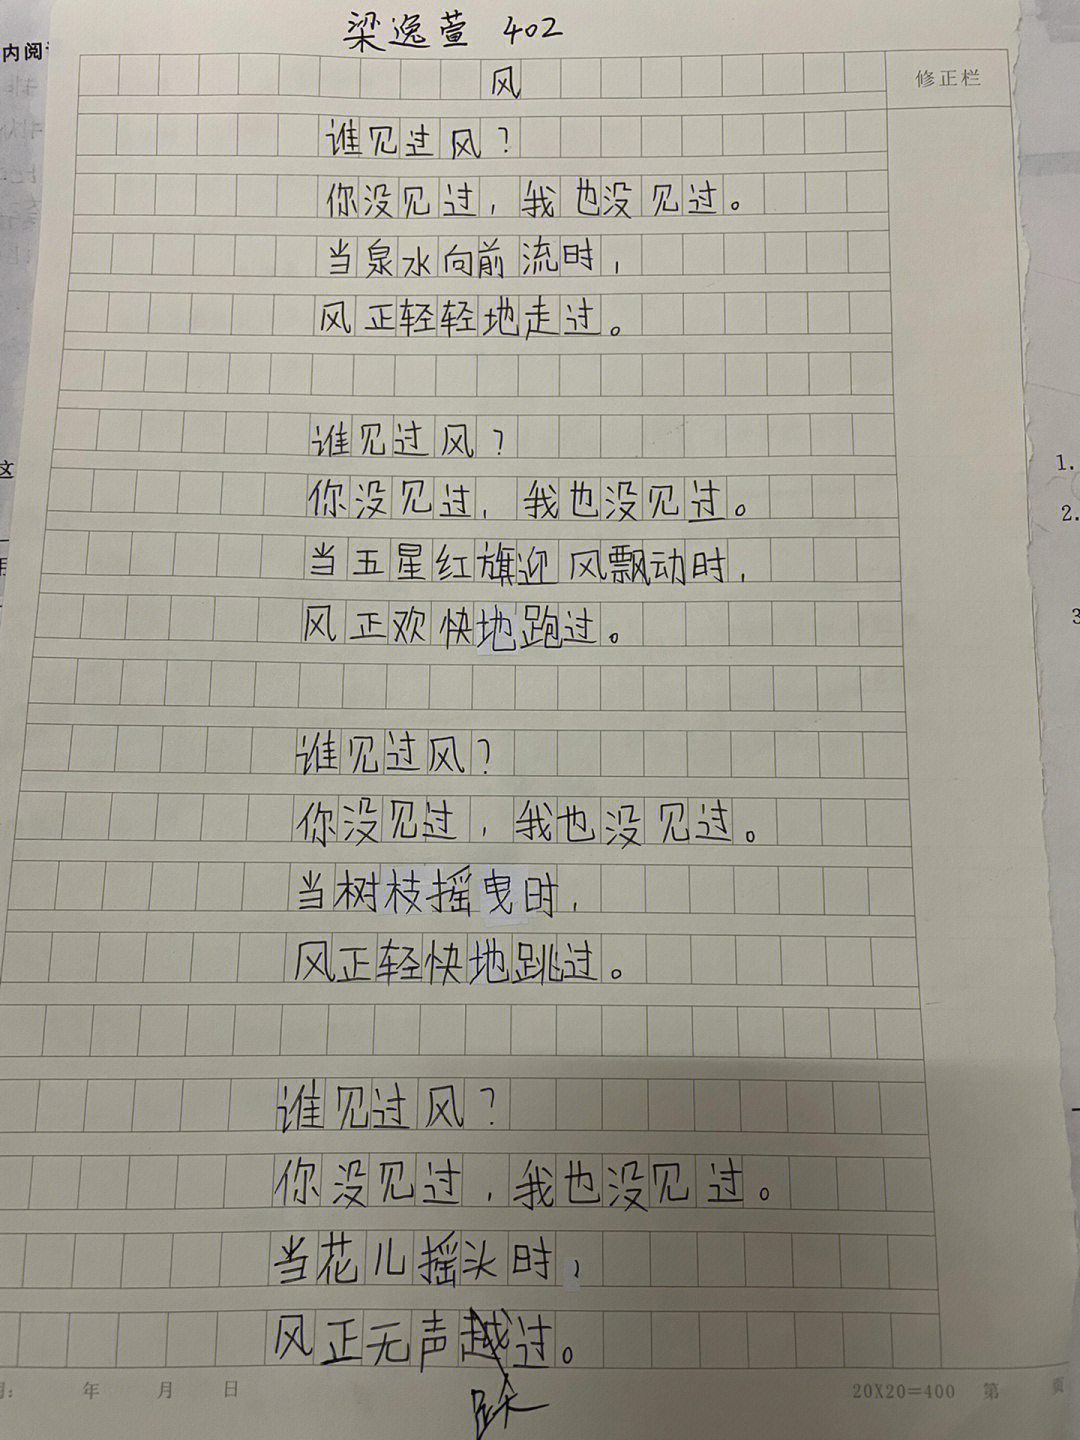 梁逸萱 402
内阅
修正栏
风
谁见过风？
你没见过，我也没见过。
当泉水向前流时，
风正轻轻地走过。
谁见过风？
你没见过，我也没见过。
当五星红旗迎风飘动时，
风正欢快地跑过。
谁见过风？
你没见过，我也没见过。
当树枝摇曳时，
风正轻快地跳过。
谁见过风？
你没见过，我也没见过。
当花儿摇头时，
风正无声越过。
年 月 日
20X20=400 第 页
这
1.
2.
3